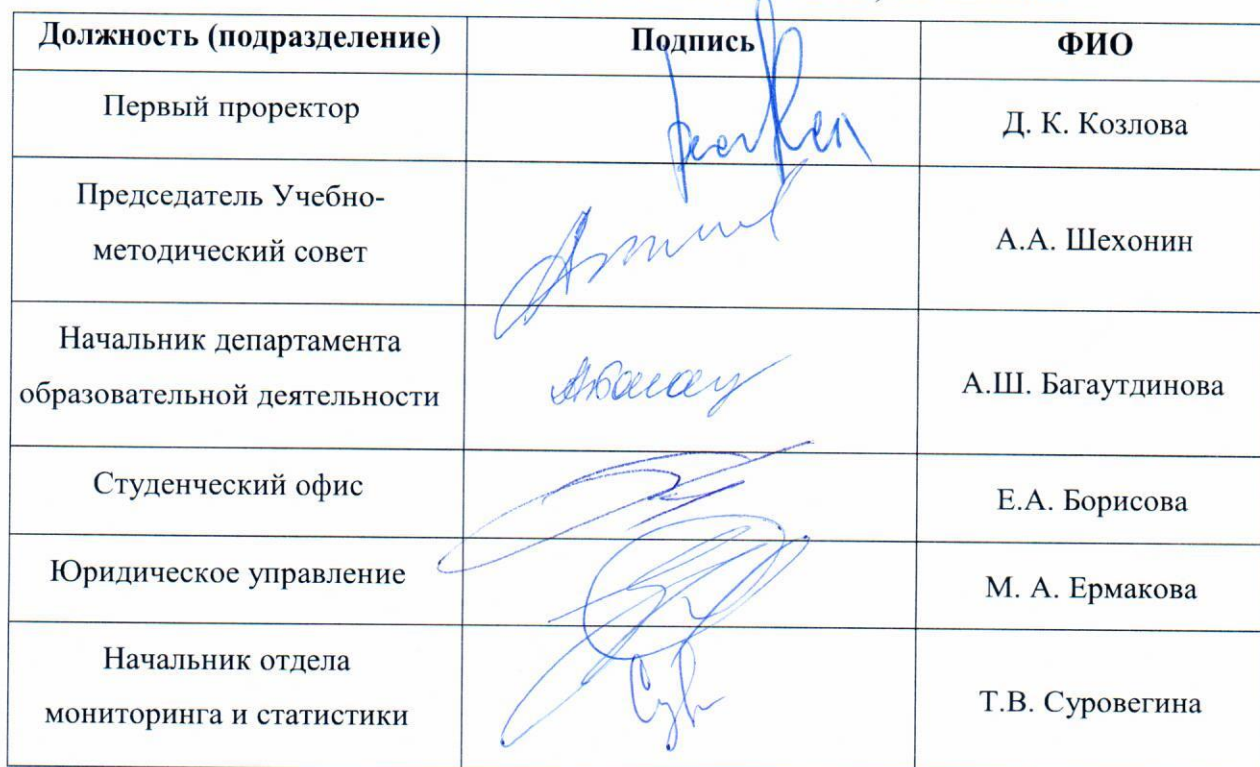 Должность (подразделение) Подпись ФИО
Первый проректор Д. К. Козлова
Председатель Учебно-
методический совет А.А. Шехонин
Начальник департамента
образовательной деятельности А.Ш. Багаутдинова
Студенческий офис Е.А. Борисова
Юридическое управление М. А. Ермакова
Начальник отдела
мониторинга и статистики Т.В. Суровегина